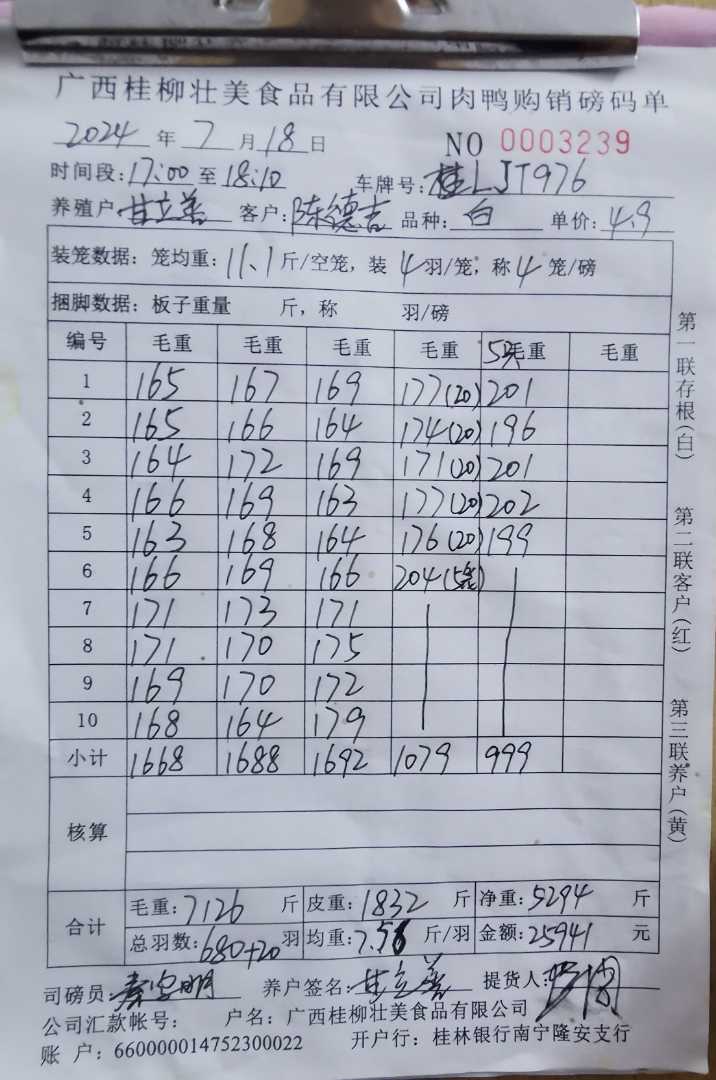 广西桂柳壮美食品有限公司肉鸭购销磅码单
2024 年 7 月 18 日 NO 0003239
时间段: 17:00 至 18:10 车牌号: 桂LJT976
养殖户 甘立善 客户: 陈德吉 品种: 白 单价: 4.9
装笼数据: 笼均重: 11.1 斤/空笼, 装 4 羽/笼, 称 4 笼/磅
捆脚数据: 板子重量 斤, 称 羽/磅
编号 毛重 毛重 毛重 毛重 5只毛重 毛重
1 165 167 169 177(20) 201
2 165 166 164 174(20) 196
3 164 172 169 171(20) 201
4 166 169 163 177(20) 202
5 163 168 164 176(20) 199
6 166 169 166 204(5笼)
7 171 173 171
8 171 170 175
9 169 170 172
10 168 164 179
小计 1668 1688 1692 1079 999
核算
合计 毛重: 7126 斤 皮重: 1832 斤 净重: 5294 斤
总羽数: 680+20 羽 均重: 7.56 斤/羽 金额: 25941 元
司磅员: 养户签名: 甘立善 提货人:
公司汇款帐号: 户名: 广西桂柳壮美食品有限公司
账 户: 660000014752300022 开户行: 桂林银行南宁隆安支行
第一联存根(白)
第二联客户(红)
第三联养户(黄)